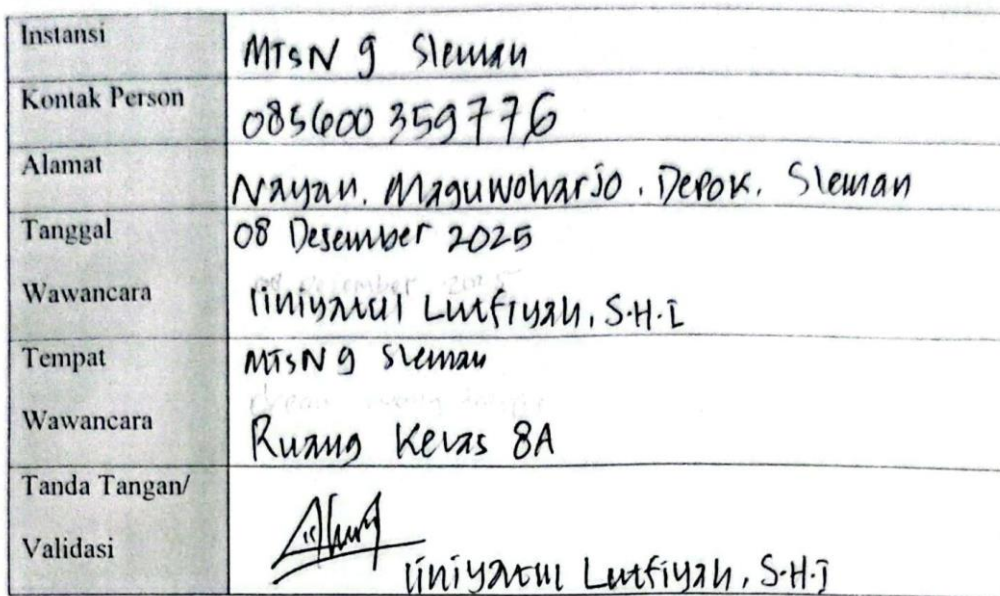 Instansi
MTsN 9 Sleman
Kontak Person
085600359776
Alamat
Nayan, Maguwoharjo, Depok, Sleman
Tanggal
08 Desember 2025
Wawancara
Iiniyatul Lutfiyah, S.H.I
Tempat
MTsN 9 Sleman
Wawancara
Ruang Kelas 8A
Tanda Tangan/
Validasi
Iiniyatul Lutfiyah, S.H.I